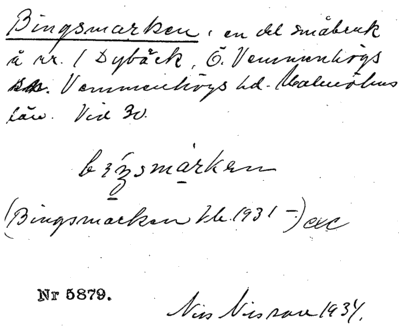 Bingsmarken, en del småbruk
å nr. 1 Dybäck, Ö. Vemmenhögs
sn. Vemmenhögs hd. Malmöhus
län. Vid 30.
biŋsmarken
(Bingsmarken 1931–)
Nr 5879.
Nils Nilsson 1934.